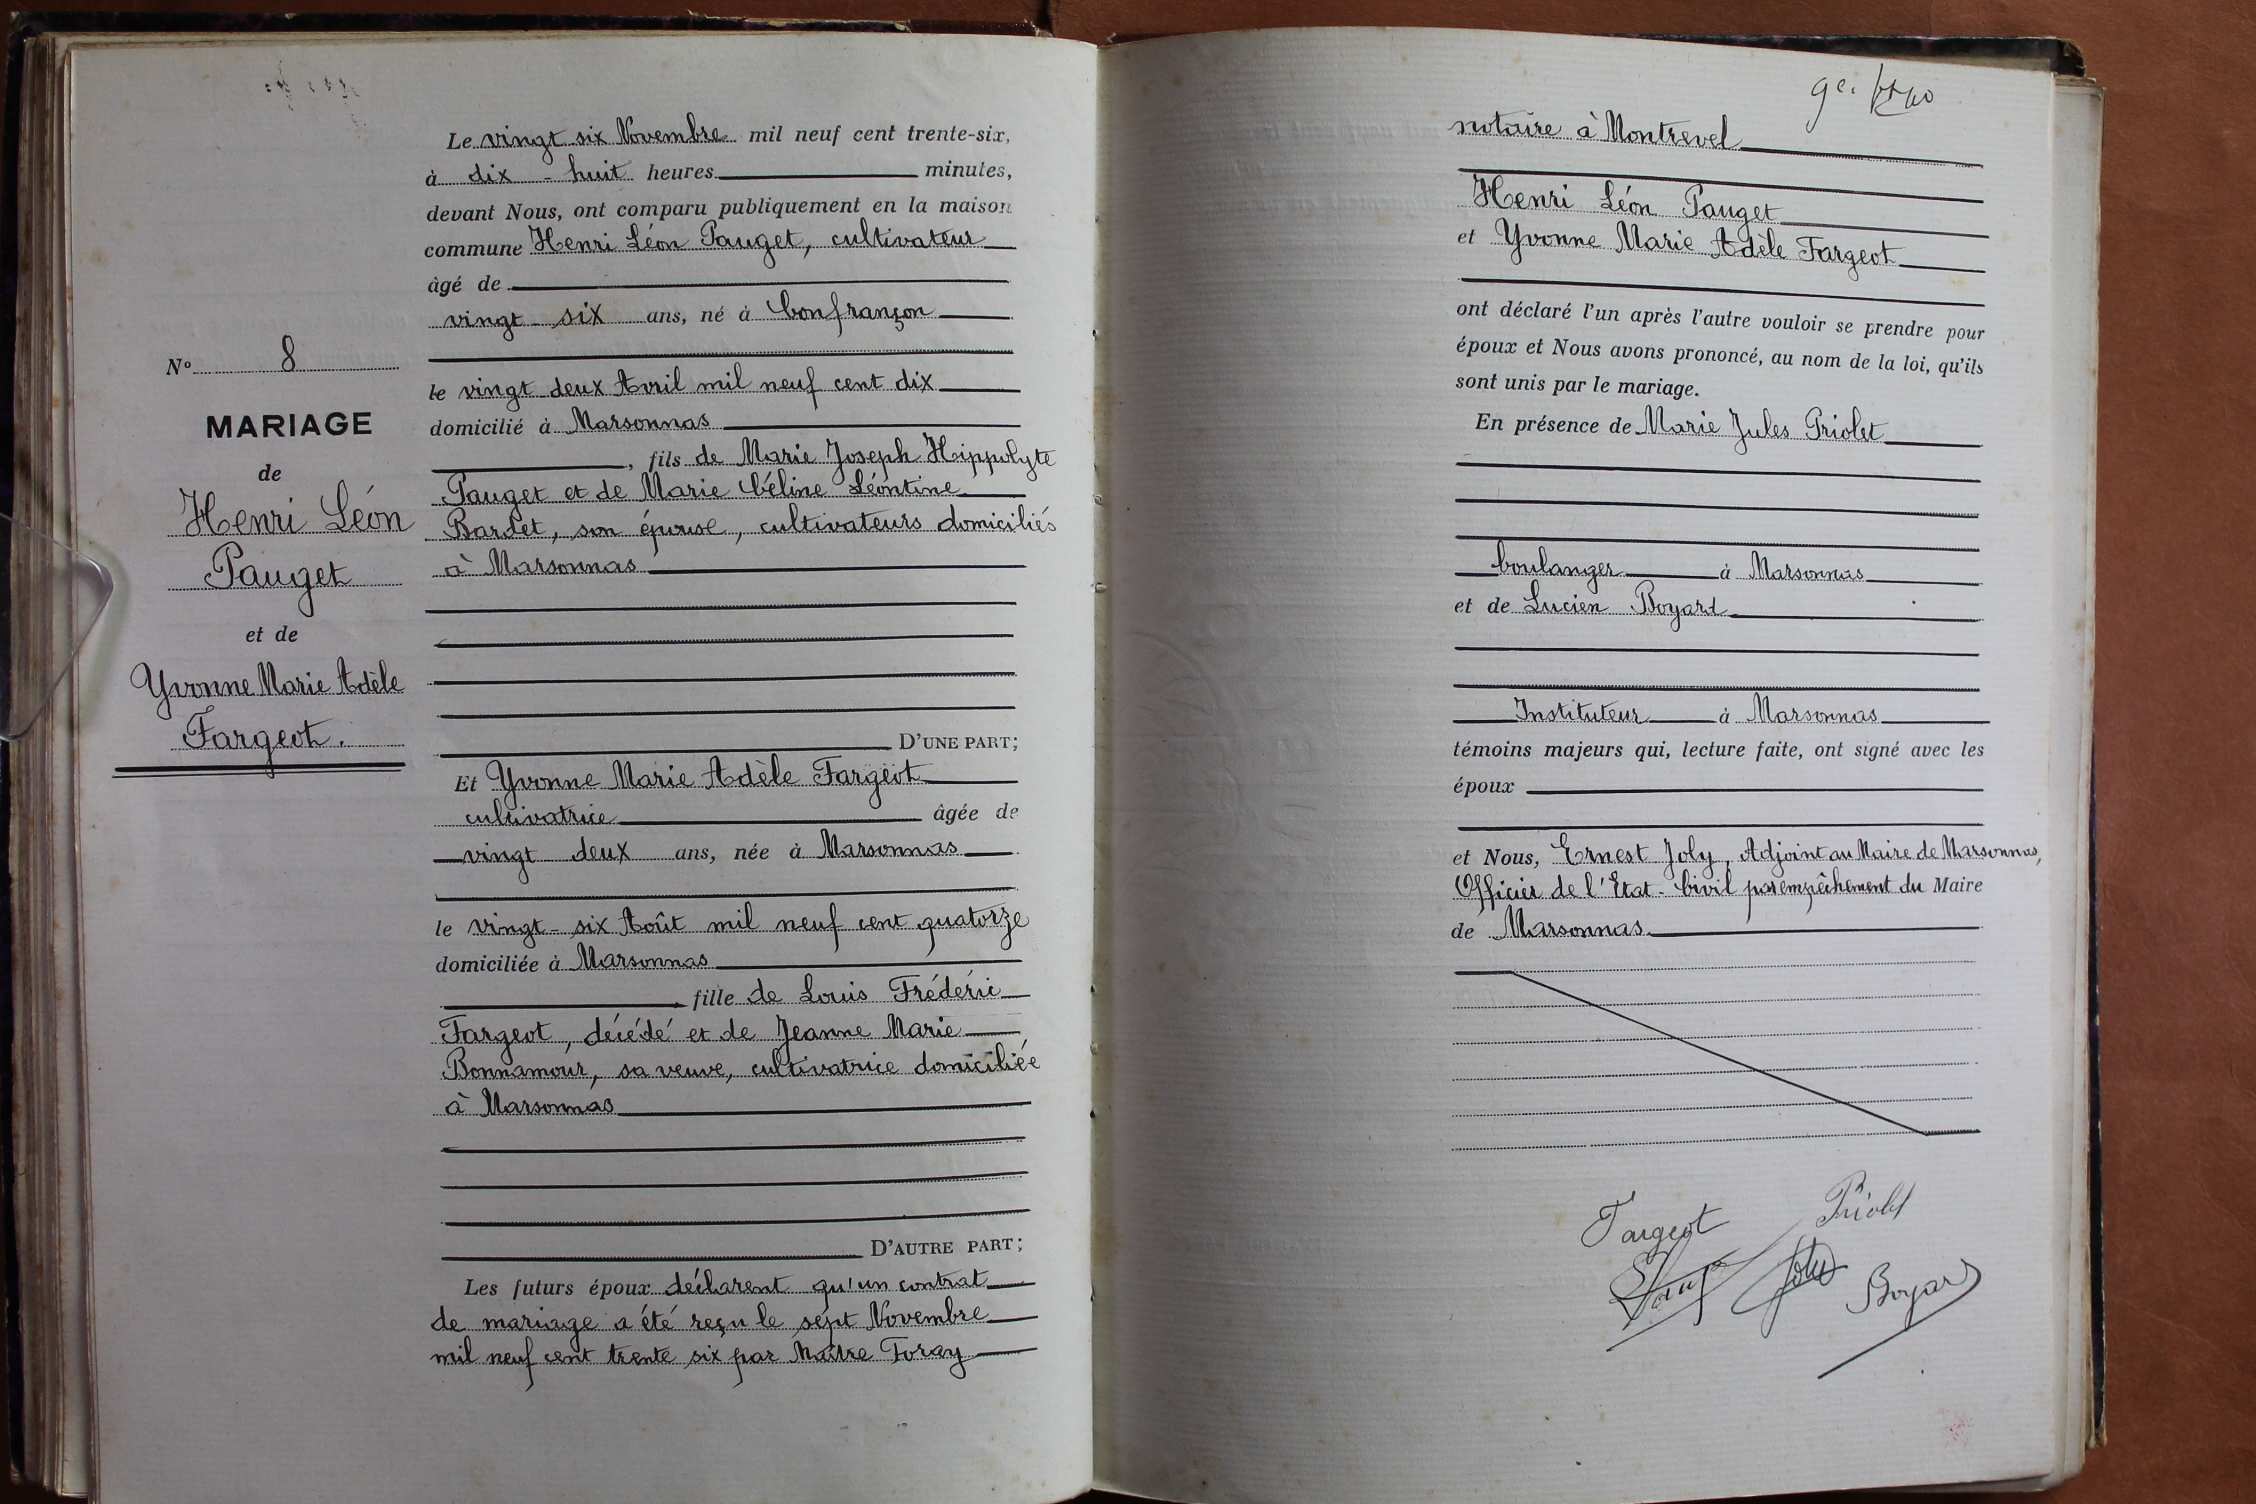 N° 8
MARIAGE
de
Henri Léon
Pauget
et de
Yvonne Marie Adèle
Fargeot.
Le vingt six Novembre mil neuf cent trente-six,
à dix-huit heures minutes,
devant Nous, ont comparu publiquement en la maison
commune Henri Léon Pauget, cultivateur
âgé de
vingt-six ans, né à Confrançon
le vingt deux Avril mil neuf cent dix
domicilié à Marsonnas
, fils de Marie Joseph Hippolyte
Pauget et de Marie Céline Léontine
Bardet, son épouse, cultivateurs domiciliés
à Marsonnas
D'UNE PART;
Et Yvonne Marie Adèle Fargeot
cultivatrice âgée de
vingt deux ans, née à Marsonnas
le vingt-six Août mil neuf cent quatorze
domiciliée à Marsonnas
fille de Louis Frédéric
Fargeot, décédé et de Jeanne Marie
Bonnamour, sa veuve, cultivatrice domiciliée
à Marsonnas
D'AUTRE PART;
Les futurs époux déclarent qu'un contrat
de mariage a été reçu le sept Novembre
mil neuf cent trente six par Maître Foray
notaire à Montrevel
Henri Léon Pauget
et Yvonne Marie Adèle Fargeot
ont déclaré l'un après l'autre vouloir se prendre pour
époux et Nous avons prononcé, au nom de la loi, qu'ils
sont unis par le mariage.
En présence de Marie Jules Priolet
boulanger à Marsonnas
et de Lucien Boyard
Instituteur à Marsonnas
témoins majeurs qui, lecture faite, ont signé avec les
époux
et Nous, Ernest Joly, Adjoint au Maire de Marsonnas,
Officier de l'Etat-Civil par empêchement du Maire
de Marsonnas
Fargeot Priolet
Joly Boyard